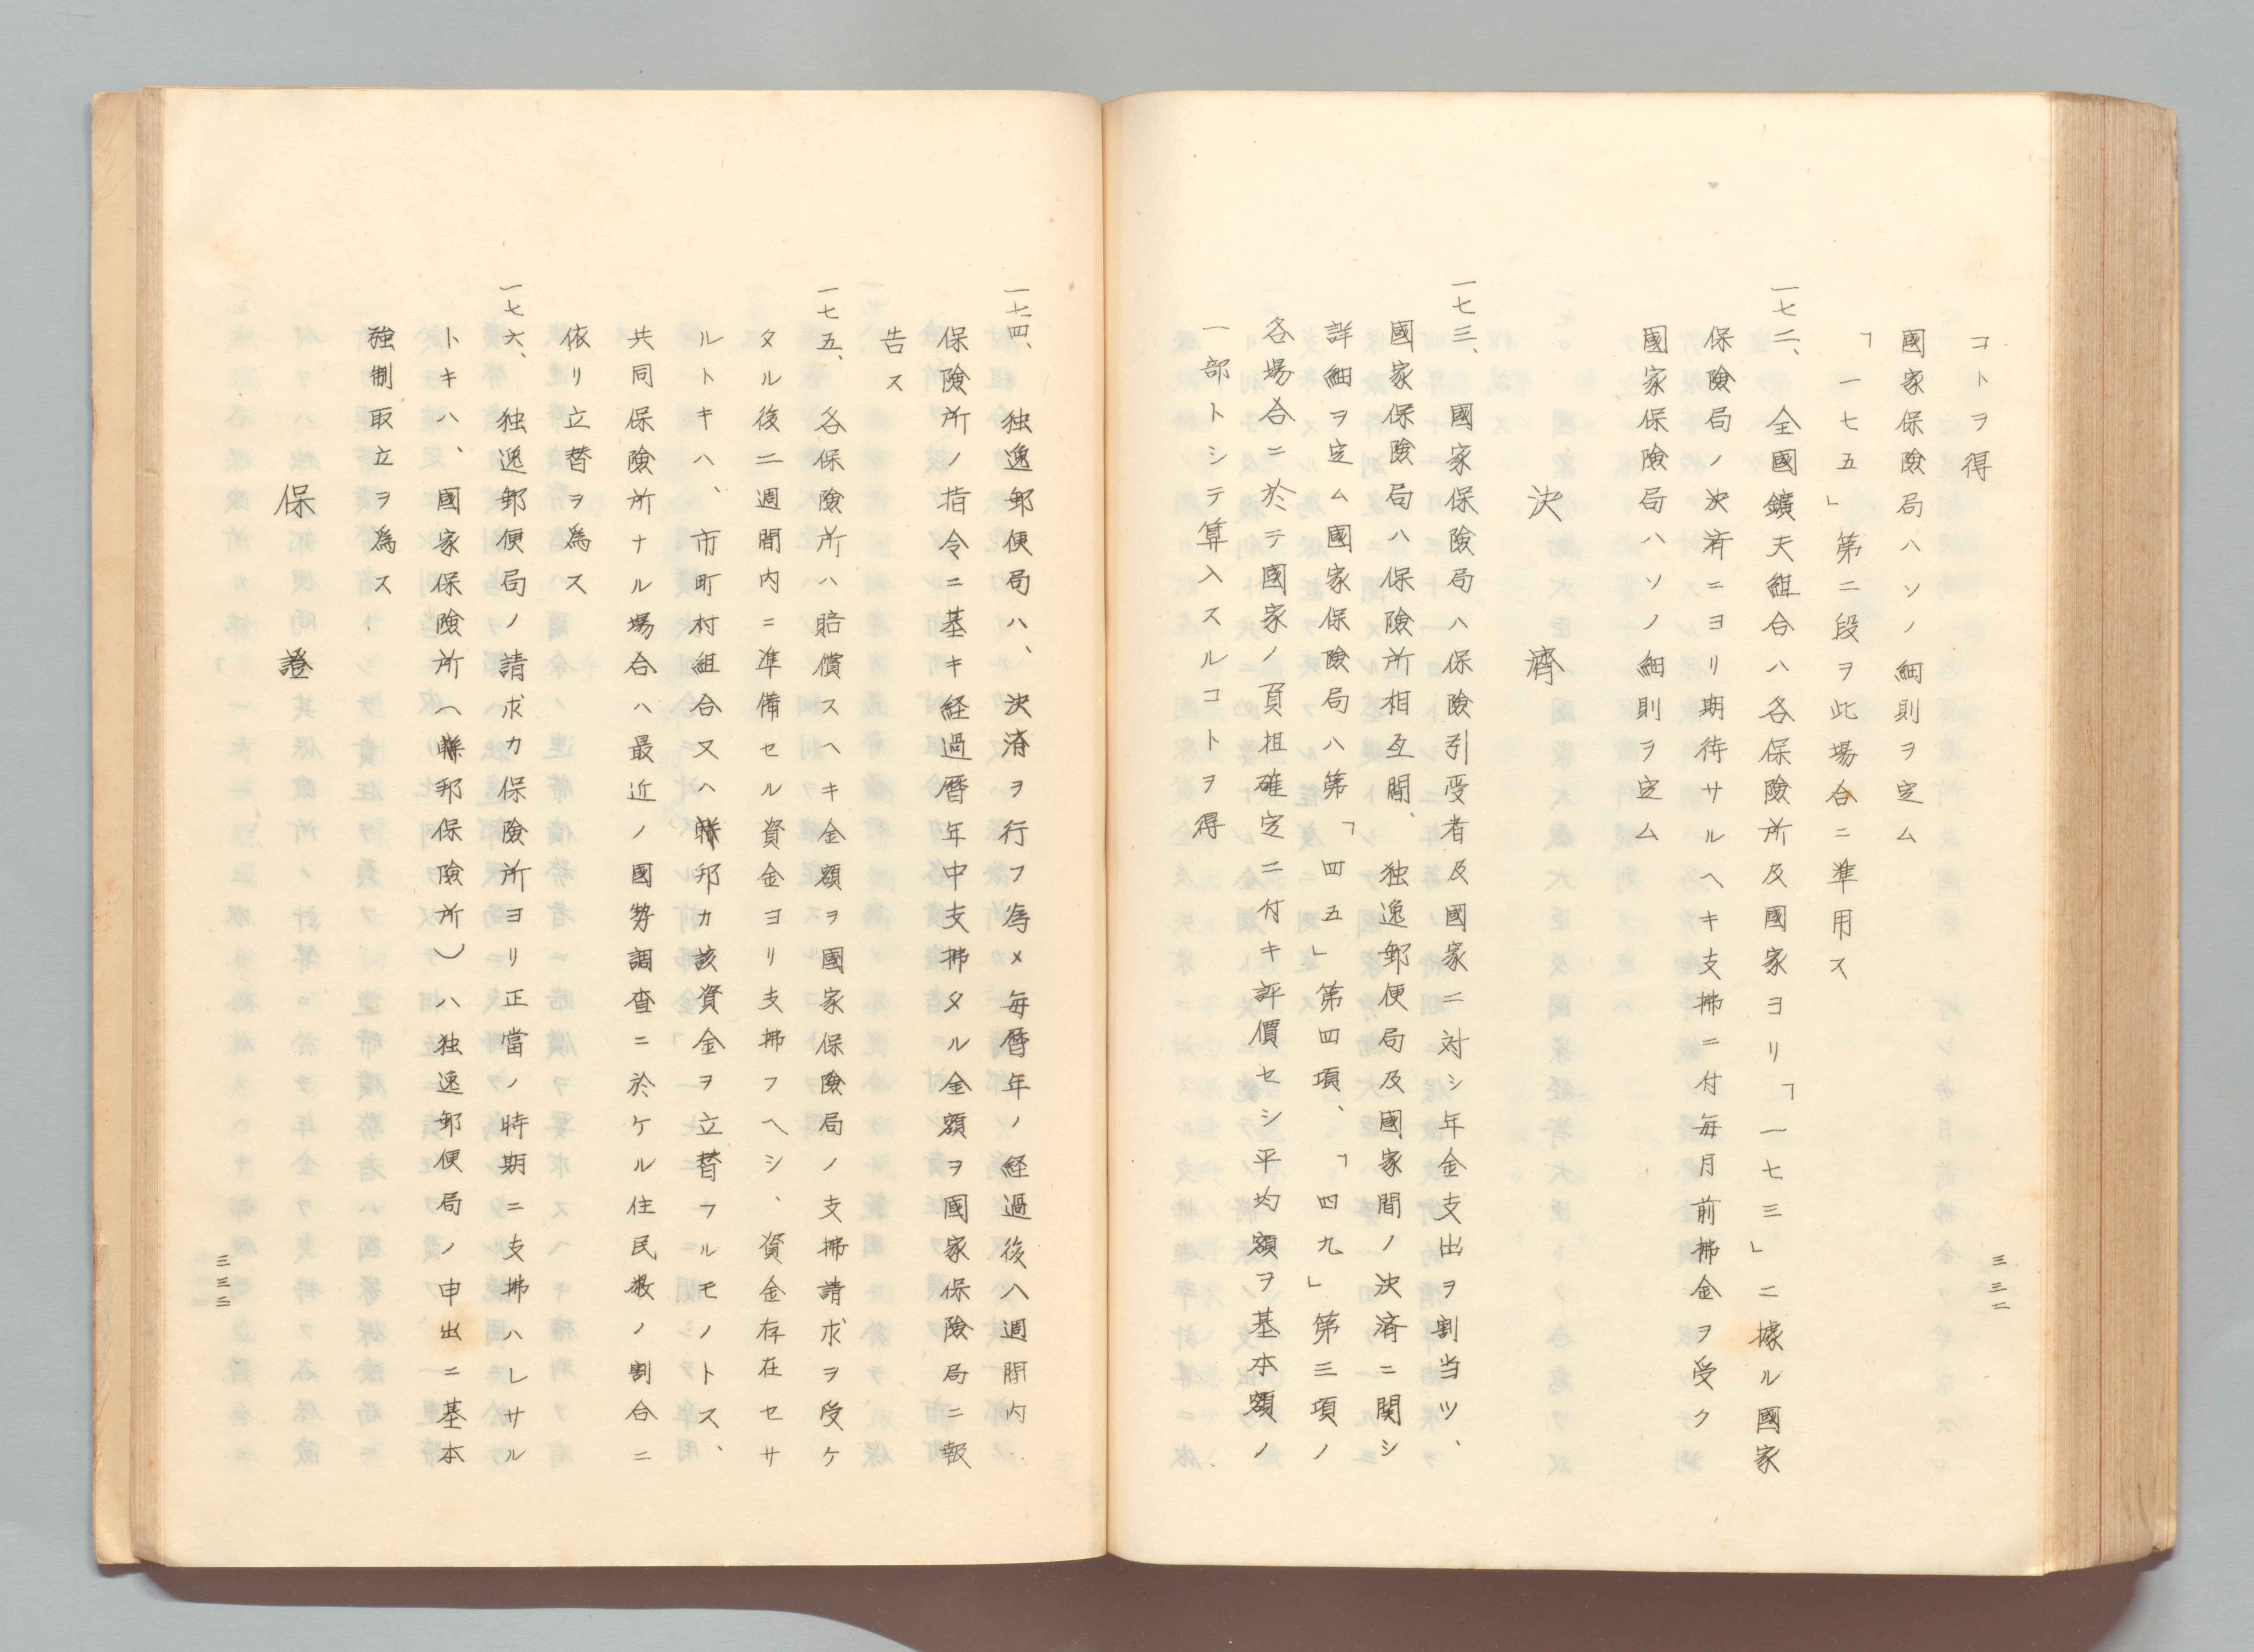 コトヲ得
國家保險局ハソノ細則ヲ定ム
「一七五」第二段ヲ此場合ニ準用ス
一七二、全國鑛夫組合ハ各保險所及國家ヨリ「一七三」ニ據ル國家
保險局ノ決済ニヨリ期待サルヘキ支拂ニ付毎月前拂金ヲ受ク
國家保險局ハソノ細則ヲ定ム
決濟
一七三、國家保險局ハ保險引受者及國家ニ対シ年金支出ヲ割当ツ、
國家保險局ハ保險所相互間、独逸郵便局及國家間ノ決済ニ関シ
詳細ヲ定ム國家保險局ハ第「四五」第四項、「四九」第三項ノ
各場合ニ於テ國家ノ負担確定ニ付キ評價セシ平均額ヲ基本額ノ
一部トシテ算入スルコトヲ得
三三二
一七四、独逸郵便局ハ、決済ヲ行フ為メ毎暦年ノ経過後八週間内
保險所ノ指令ニ基キ経過暦年中支拂タル金額ヲ國家保險局ニ報
告ス
一七五、各保險所ハ賠償スヘキ金額ヲ國家保險局ノ支拂請求ヲ受ケ
タル後二週間内ニ準備セル資金ヨリ支拂フヘシ、資金存在セサ
ルトキハ、市町村組合又ハ聯邦カ該資金ヲ立替フルモノトス、
共同保險所ナル場合ハ最近ノ國勢調査ニ於ケル住民数ノ割合ニ
依リ立替ヲ為ス
一七六、独逸郵便局ノ請求カ保險所ヨリ正當ノ時期ニ支拂ハレサル
トキハ、國家保險所（聯邦保險所）ハ独逸郵便局ノ申出ニ基本
強制取立ヲ為ス
保證
三三三